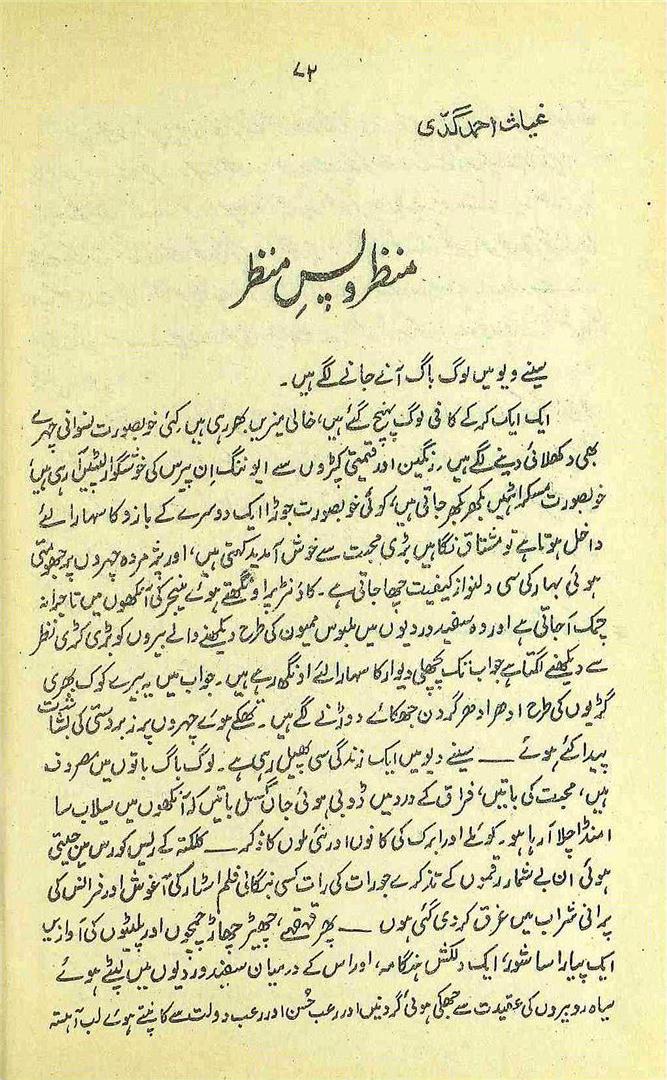 ۷۲
غیاث احمد گدّی
منظر و پسِ منظر
سینے ویو میں لوگ باگ آنے جانے لگے ہیں۔
ایک ایک کر کے کافی لوگ پہنچ گئے ہیں، خالی میزیں بھر رہی ہیں کئی خوبصورت نسوانی چہرے
بھی دکھلائی دینے لگے ہیں۔ رنگین اور قیمتی کپڑوں سے ایوننگ اِن پیرس کی خوشگوار لپٹیں آ رہی ہیں،
خوبصورت مسکراہٹیں بکھر بکھر جاتی ہیں، کوئی خوبصورت جوڑا ایک دوسرے کے بازو کا سہارا لئے
داخل ہوتا ہے تو مشتاق نگاہیں بڑی محبت سے خوش آمدید کہتی ہیں، اور پژمردہ چہروں پر جھومتی
ہوئی بہار کی سی دلنواز کیفیت چھا جاتی ہے۔ کاؤنٹر پر اونگھتے ہوئے منیجر کی آنکھوں میں تاجرانہ
چمک آ جاتی ہے اور وہ سفید وردیوں میں ملبوس ممیوں کی طرح دیکھنے والے بیروں کو بڑی کڑی نظر
سے دیکھنے لگتا ہے جو اب تک پچھلی دیوار کا سہارا لئے اونگھ رہے ہیں۔ جواب میں یہ بیرے کوک بھری
گڑیوں کی طرح ادھر ادھر گردن جھکائے دوڑنے لگے ہیں۔ تھکے ہوئے چہروں پر زبردستی کی بشاشت
پیدا کئے ہوئے —— سینے ویو میں ایک زندگی سی پھیل رہی ہے۔ لوگ باگ باتوں میں مصروف
ہیں، محبت کی باتیں، فراق کے درد میں ڈوبی ہوئی جاں گسل باتیں کہ آنکھوں میں سیلاب سا
امنڈا چلا آ رہا ہو۔ کوئلے اور ابرک کی کانوں اور نئی ملوں کا ذکر —— کلکتہ کے ریس کورس میں جیتی
ہوئی ان بے شمار رقموں کے تذکرے جو رات کی رات کسی بنگالی فلم اسٹار کی آغوش اور فرانس کی
پرانی شراب میں غرق کر دی گئی ہوں —— پھر قہقہے، چھیڑ چھاڑ چمچوں اور پلیٹوں کی آوازیں
ایک پیارا سا شور، ایک دلکش ہنگامہ، اور اس کے درمیان سفید وردیوں میں لپٹے ہوئے
سیاہ رو بیروں کی عقیدت سے جھکی ہوئی گردنیں اور رعب حُسن اور رعب دولت سے کانپتے ہوئے لب آہستہ